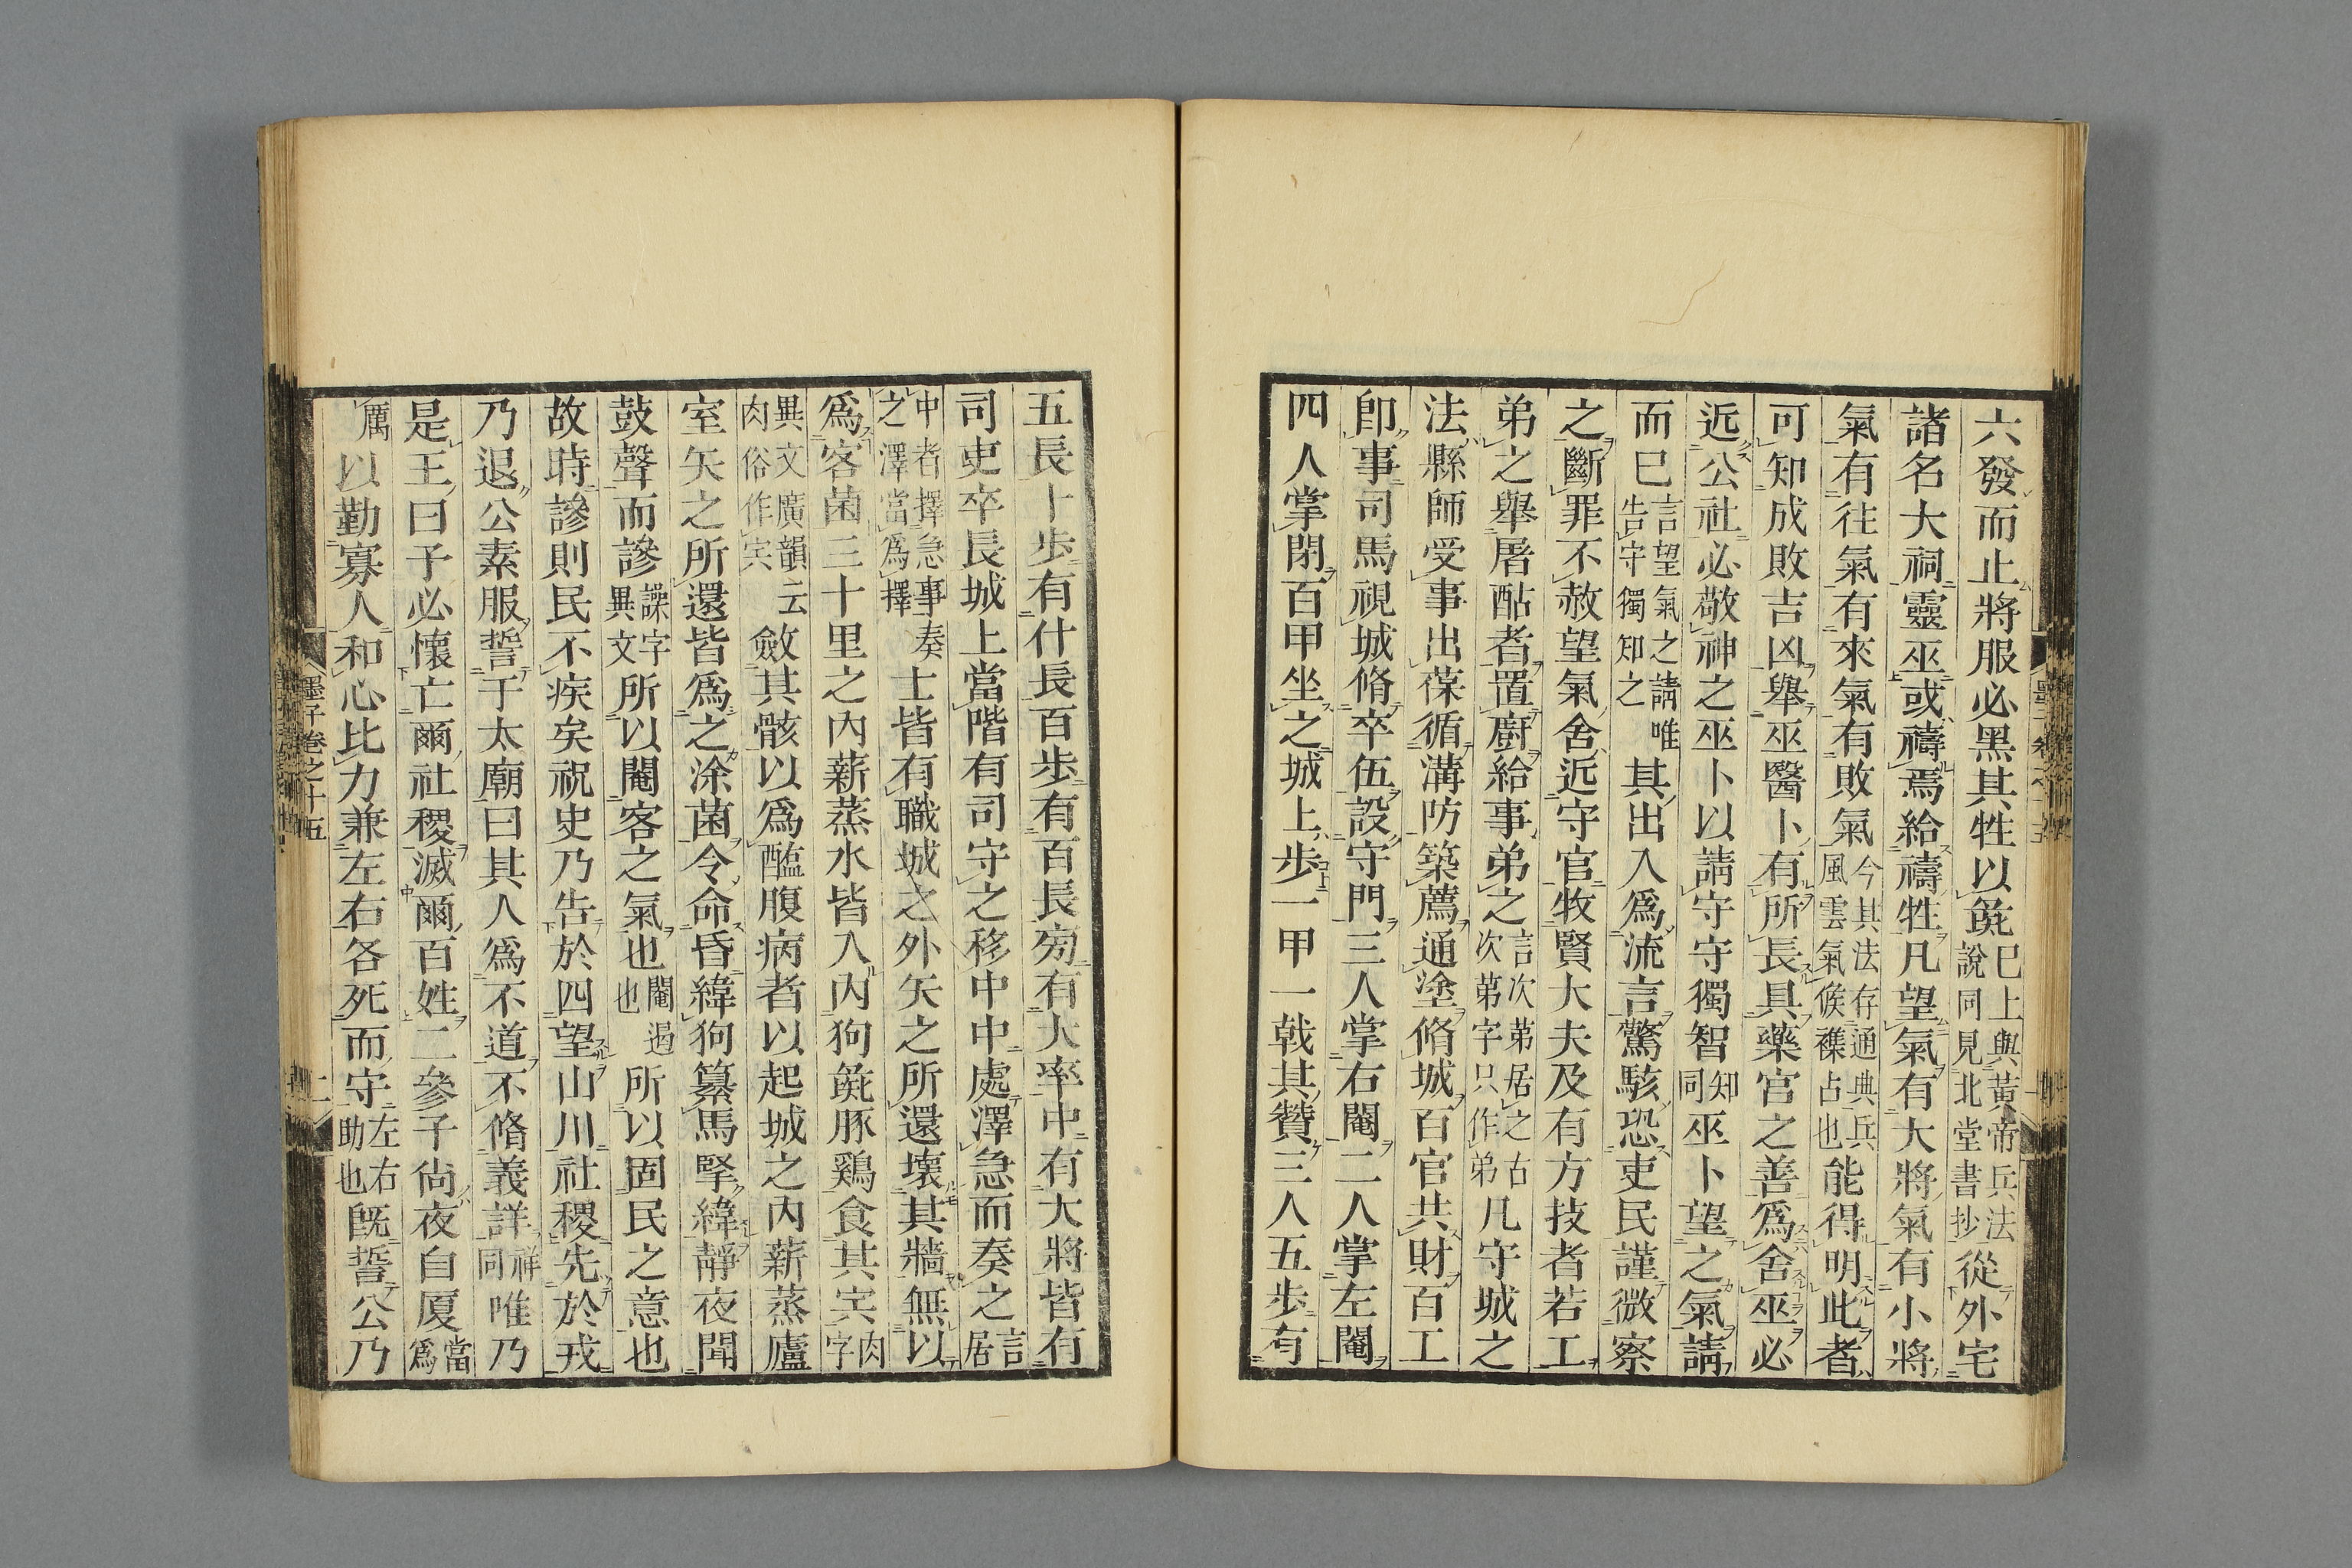 六發而止將服必黑其牲以𤞞巳上與黃帝兵法說同見北堂書抄從外宅
諸名大祠靈巫或禱焉給禱牲凡望氣有大將氣有小將
氣有往氣有來氣有敗氣今其法存通典兵風雲氣候襍占也能得明此者
可知成敗吉凶舉巫醫卜有所長具藥宮之善爲舍巫必
近公社必敬神之巫卜以請守守獨智知同巫卜望之氣請
而巳言望氣之請唯告守獨知之其出入爲流言驚駭恐吏民謹微察
之斷罪不赦望氣舍近守官牧賢大夫及有方技者若工
弟之舉屠酤者置廚給事弟之言次第居之古次第字只作弟凡守城之
法縣師受事出葆循溝防築薦通塗脩城百官共財百工
卽事司馬視城脩卒伍設守門三人掌右閹二人掌左閹
四人掌閉百甲坐之城上步一甲一戟其贊三人五步有
五長十步有什長百步有百長旁有大率中有大將皆有
司吏卒長城上當階有司守之移中中處澤急而奏之言居
中者擇急事奏之澤當爲擇士皆有職城之外矢之所還壞其牆無以
爲客菌三十里之內薪蒸水皆入內狗彘豚鷄食其宍肉字
異文廣韻云肉俗作宍斂其骸以爲醢腹病者以起城之內薪蒸廬
室矢之所還皆爲之涂菌令命昏緯狗纂馬掔緯靜夜聞
鼓聲而謲譟字異文所以閹客之氣也閹遏也所以固民之意也
故時謲則民不疾矣祝史乃告於四望山川社稷先於戎
乃退公素服誓于太廟曰其人爲不道不脩義詳祥同唯乃
是王曰予必懷亡爾社稷滅爾百姓二參子尙夜自厦當爲
厲以勤寡人和心比力兼左右各死而守左右助也旣誓公乃
墨子卷之十五